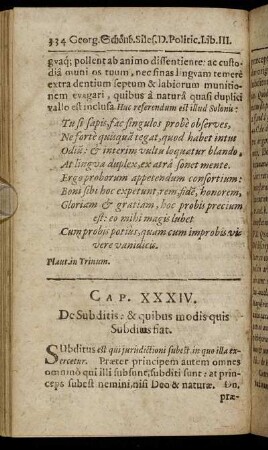 334 Georg. Schönb. Siles. D. Politic. Lib. III.
gvaq; pollent ab animo dissentiente: ac custo-
diā muni os tuum, nec sinas lingvam temerè
extra dentium septum & labiorum munitio-
nem evagari, quibus à naturâ quasi duplici
vallo est inclusa. Huc referendum est illud Solonis:
Tu si sapis, fac singulos probè observes,
Ne fortè quisquā tegat, quod habet intus
Odiū: & interim vultu loquatur blando,
At lingva duplex, ex atrâ sonet mente.
Ergo proborum appetendum consortium:
Boni sibi hoc expetunt, rem, fidē, honorem,
Gloriam & gratiam, hoc probis precium
est: eo mihi magis lubet
Cum probis potius, quam cum improbis vi-
vere vanidicis.
Plaut. in Trinum.
CAP. XXXIV.
De Subditis: & quibus modis quis
Subditus fiat.
SUbditus est qui jurisdictioni subest, in quo illa ex-
ercetur. Præter principem autem omnes
omninò qui illi subsunt, subditi sunt: at prin-
ceps subest nemini, nisi Deo & naturæ. Un.
præ-